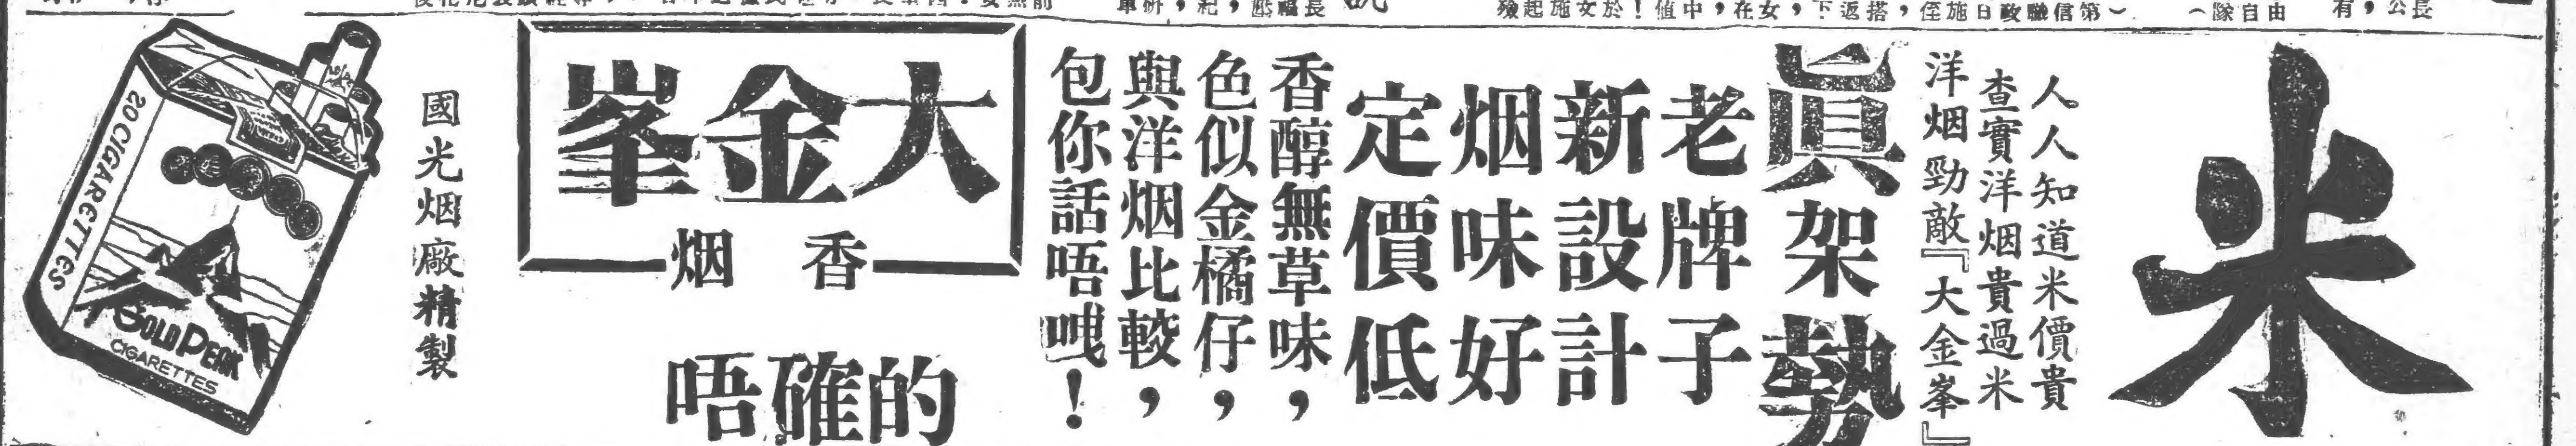 米
人人知道米價貴
查實洋烟貴過米
洋烟勁敵『大金峯』
眞架勢
老牌子
新設計
烟味好
定價低
香醇無草味，
色似金橘仔，
與洋烟比較，
包你話唔哋！
大金峯
香烟
的確唔
國光烟廠精製
20 CIGARETTES
GOLD PEAK
CIGARETTES